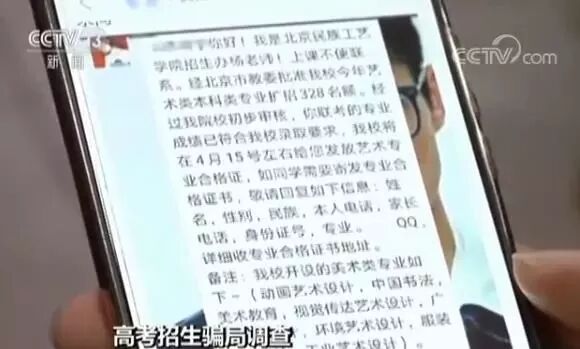 CCTV 13
新闻
CCTV.com
你好！我是北京民族工艺
学院招生办杨老师！上课不便联
系。经北京市教委批准我校今年艺
术类本科类专业扩招328名额。经
过我院校初步审核，你联考的专业
成绩已符合我校录取要求，我校将
在4月15号左右给您发放艺术专
业合格证，如同学需要寄发专业合
格证书，敬请回复如下信息：姓
名，性别，民族，本人电话，家长
电话，身份证号，专业。 QQ，
详细收专业合格证书地址。
备注：我校开设的美术类专业如
下~（动画艺术设计，中国书法，
美术教育，视觉传达艺术设计，广
，环境艺术设计，服装
工业艺术设计）。
高考招生骗局调查